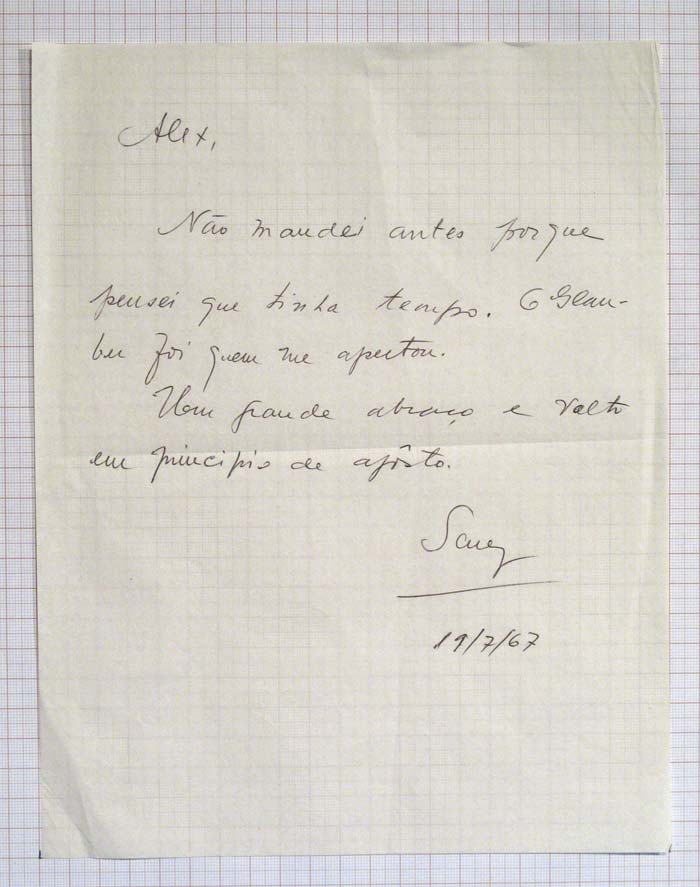 Alex,
Não mandei antes porque
pensei que tinha tempo. O Glau-
ber foi quem me apertou.
Um grande abraço e volto
em principio de agôsto.
19/7/67